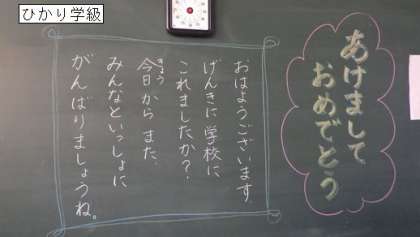 ひかり学級
あけまして
おめでとう
おはようございます。
げんきに学校に
これましたか?
今日から また、
きょう
みんなといっしょに
がんばりましょうね。